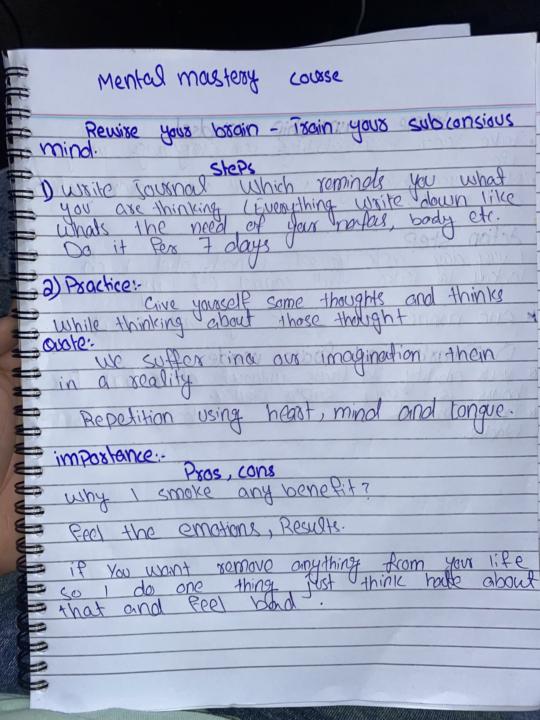 Mental mastery course
Rewire your brain - Train your subconsious
mind.
Steps
1) Write journal which reminds you what
you are thinking (Everything write down like
whats the need of your , body etc.
Do it for 7 days
2) Practice:-
Give yourself some thoughts and thinks
while thinking about those thought
Quote:-
We suffer in our imagination then
in a reality
Repetition using heart, mind and tongue.
importance:-
Pros, cons
Why I smoke any benefit?
Feel the emotions, Results.
if You want remove anything from your life
so I do one thing just think hate about
that and feel bad.